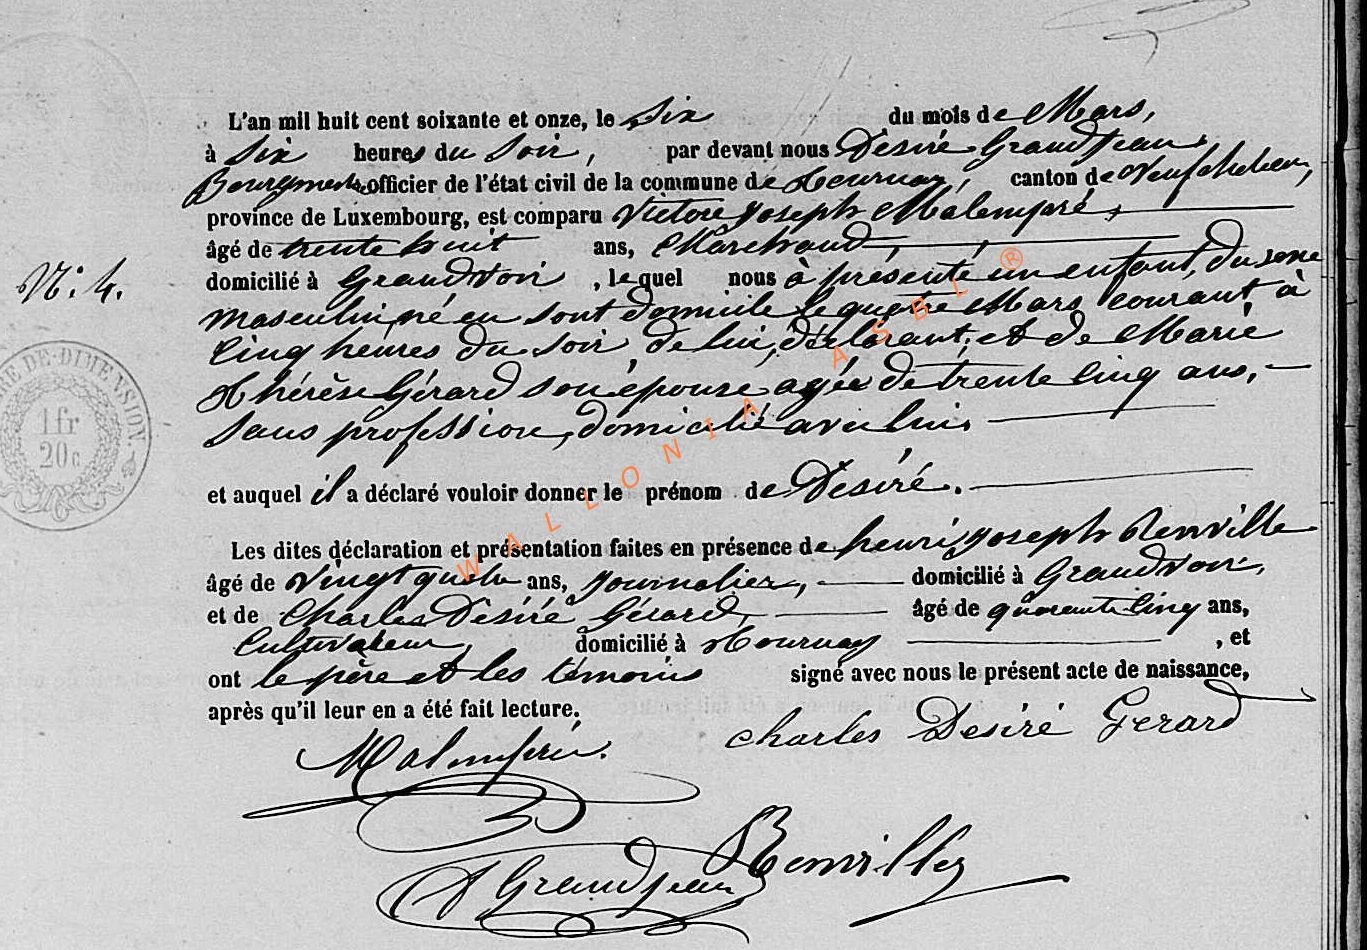 L'an mil huit cent soixante et onze, le six du mois de Mars,
à six heures du soir, par devant nous Désiré Grandjean,
Bourgmestre officier de l'état civil de la commune de Tournay, canton de Neufchateau,
province de Luxembourg, est comparu Victore Joseph Malempré,
âgé de trente huit ans, Marchand,
N: 4.
domicilié à Grandvoir, lequel nous à présenté un enfant, du sexe
masculin, né en sont domicile le quatre Mars courant, à
cinq heures du soir, de lui, déclarant, et de Marie
Thérèse Gérard son épouse, agée de trente cinq ans,
sans profession, domicilié avec lui,
et auquel il a déclaré vouloir donner le prénom de Désiré.
Les dites déclaration et présentation faites en présence de henri Joseph Renville
âgé de vingt quatre ans, Journalier, domicilié à Grandvoir,
et de Charles Désiré Gérard, âgé de quarante cinq ans,
Cultivateur, domicilié à Tournay, et
ont le père et les témoins signé avec nous le présent acte de naissance,
après qu'il leur en a été fait lecture.
Malempré.
Charles Desiré Gerard
Renville
D Grandjean
RE DE DIMENSION
1 fr
20 c
WALLONIA ASBL ®